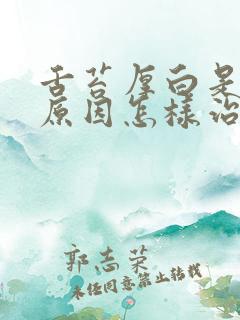 舌苔厚白是
原因怎样治
郭志荣
未经同意禁止转载